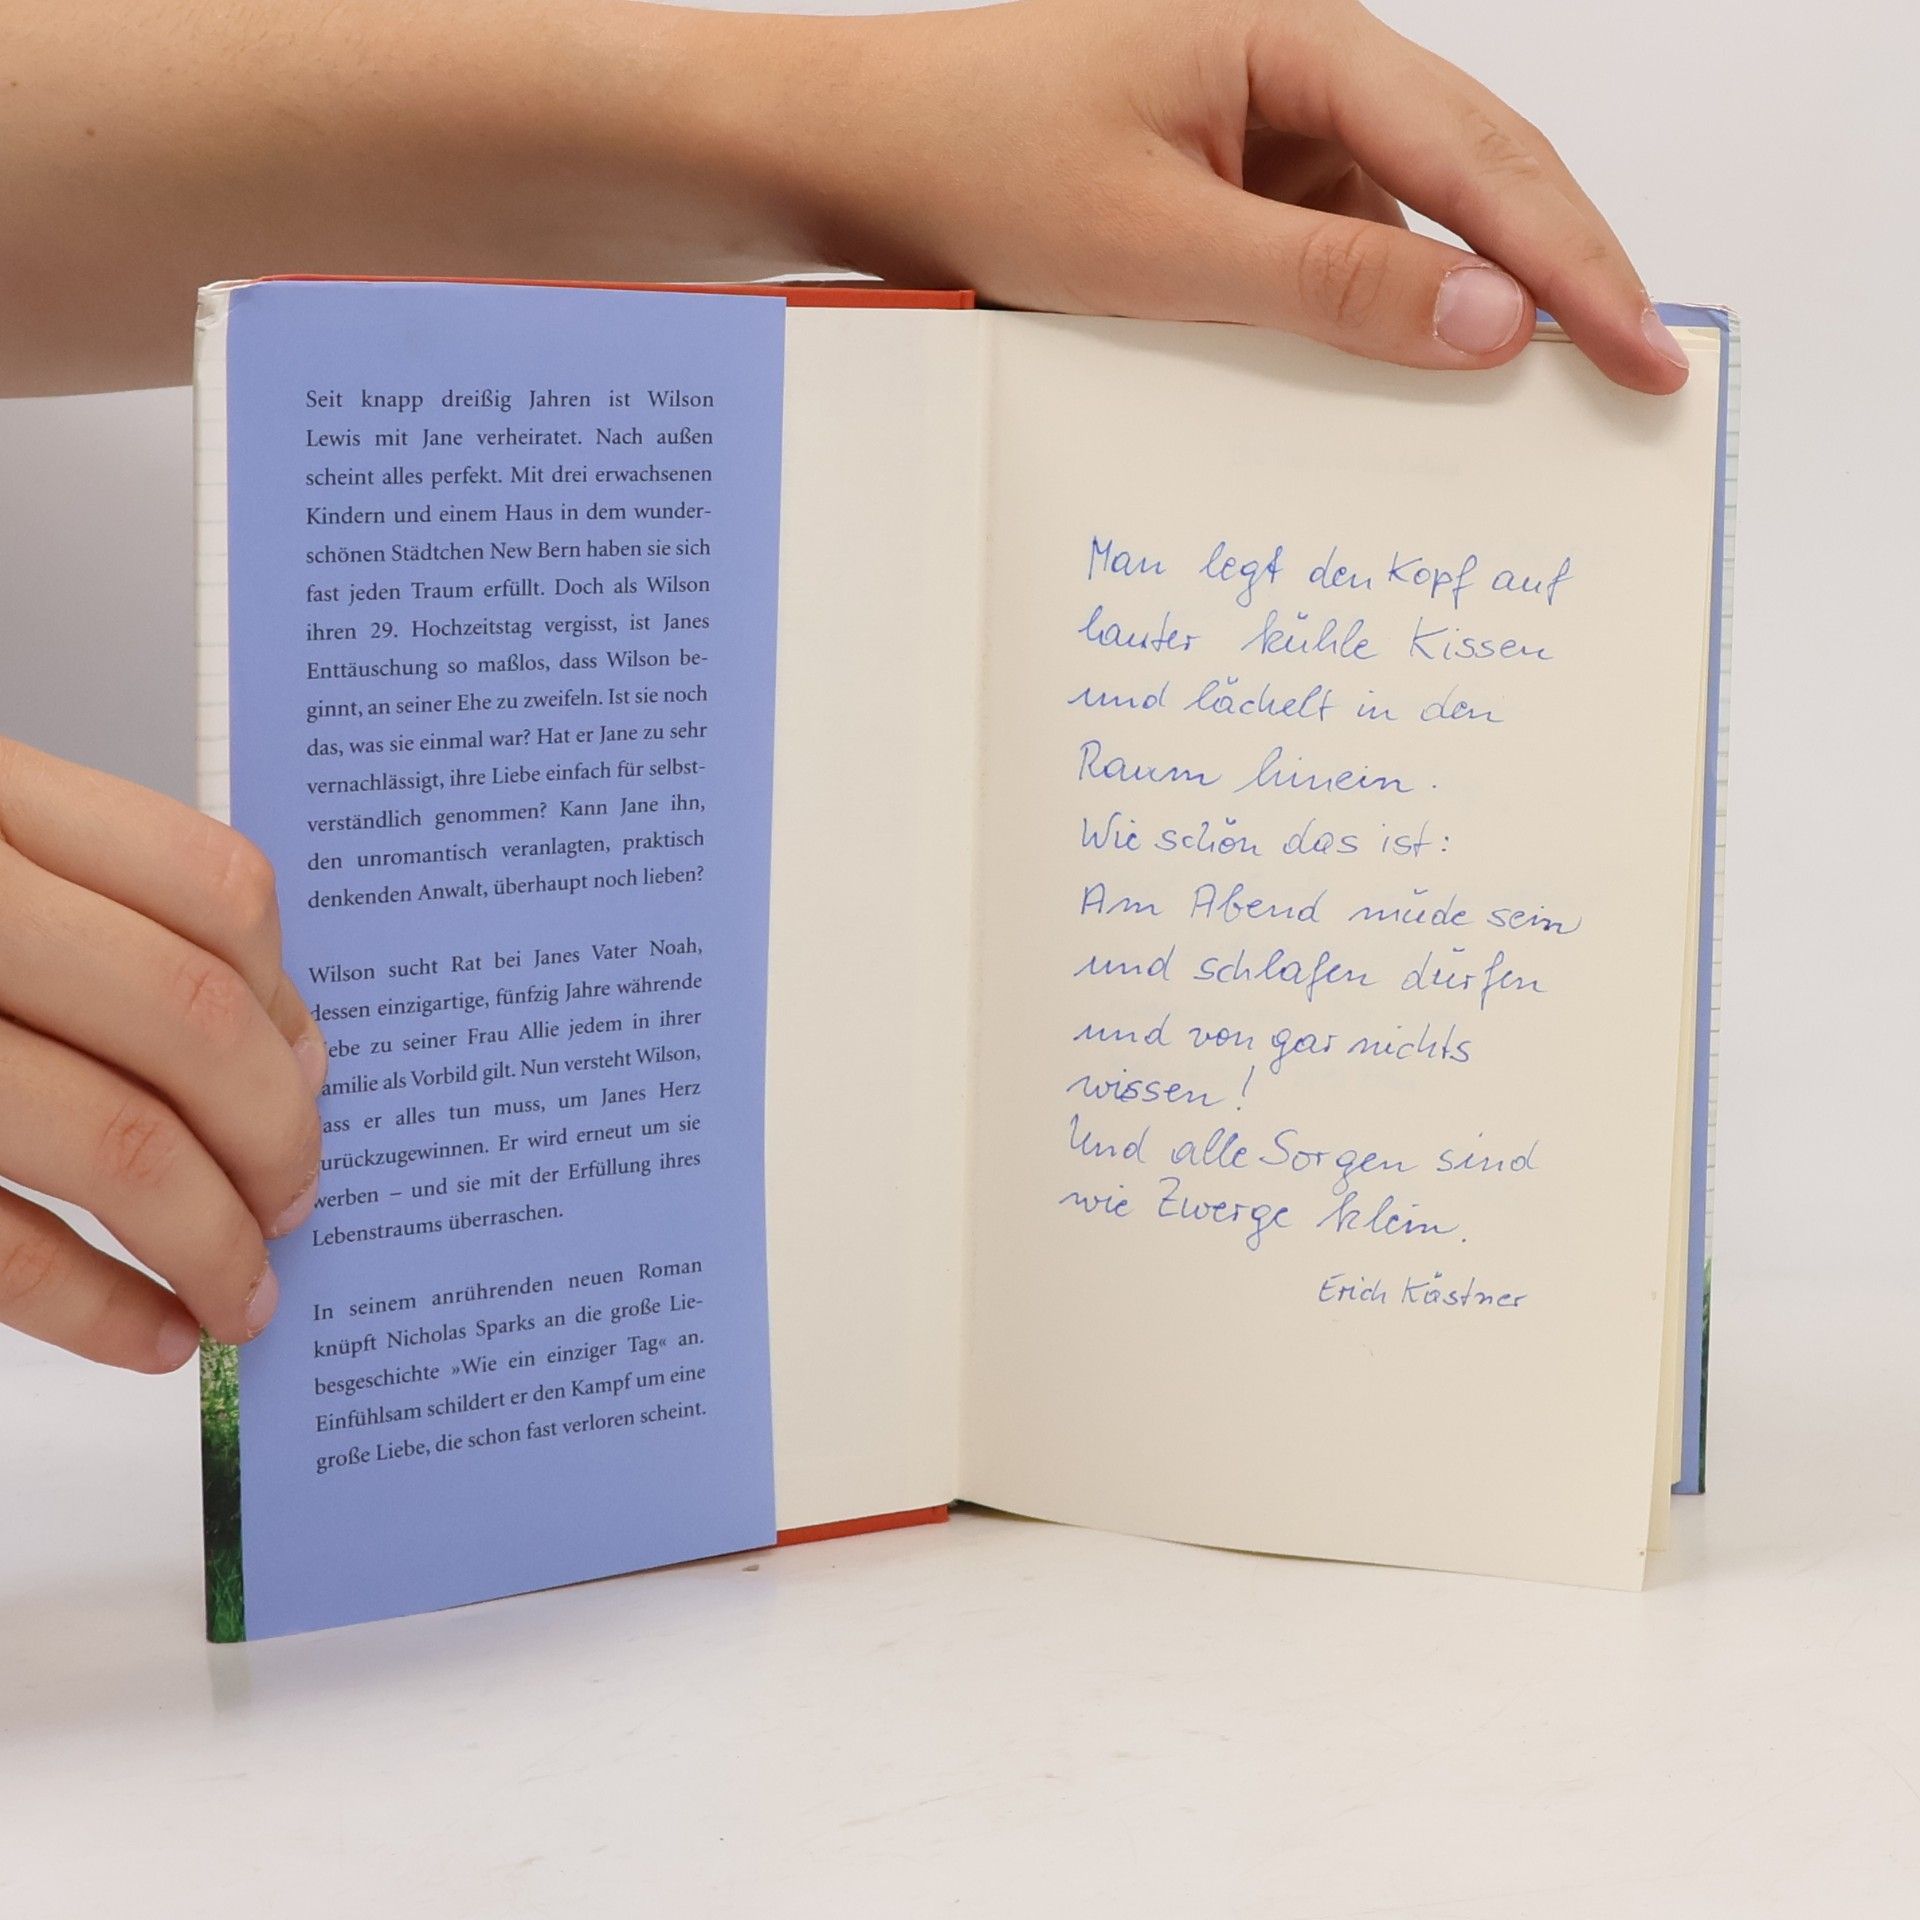 Seit knapp dreißig Jahren ist Wilson
Lewis mit Jane verheiratet. Nach außen
scheint alles perfekt. Mit drei erwachsenen
Kindern und einem Haus in dem wunder-
schönen Städtchen New Bern haben sie sich
fast jeden Traum erfüllt. Doch als Wilson
ihren 29. Hochzeitstag vergisst, ist Janes
Enttäuschung so maßlos, dass Wilson be-
ginnt, an seiner Ehe zu zweifeln. Ist sie noch
das, was sie einmal war? Hat er Jane zu sehr
vernachlässigt, ihre Liebe einfach für selbst-
verständlich genommen? Kann Jane ihn,
den unromantisch veranlagten, praktisch
denkenden Anwalt, überhaupt noch lieben?
Wilson sucht Rat bei Janes Vater Noah,
dessen einzigartige, fünfzig Jahre währende
ebe zu seiner Frau Allie jedem in ihrer
amilie als Vorbild gilt. Nun versteht Wilson,
ass er alles tun muss, um Janes Herz
urückzugewinnen. Er wird erneut um sie
werben – und sie mit der Erfüllung ihres
Lebenstraums überraschen.
In seinem anrührenden neuen Roman
knüpft Nicholas Sparks an die große Lie-
besgeschichte »Wie ein einziger Tag« an.
Einfühlsam schildert er den Kampf um eine
große Liebe, die schon fast verloren scheint.
Man legt den Kopf auf
lauter kühle Kissen
und lächelt in den
Raum hinein.
Wie schön das ist:
Am Abend müde sein
und schlafen dürfen
und von gar nichts
wissen!
Und alle Sorgen sind
wie Zwerge klein.
Erich Kästner